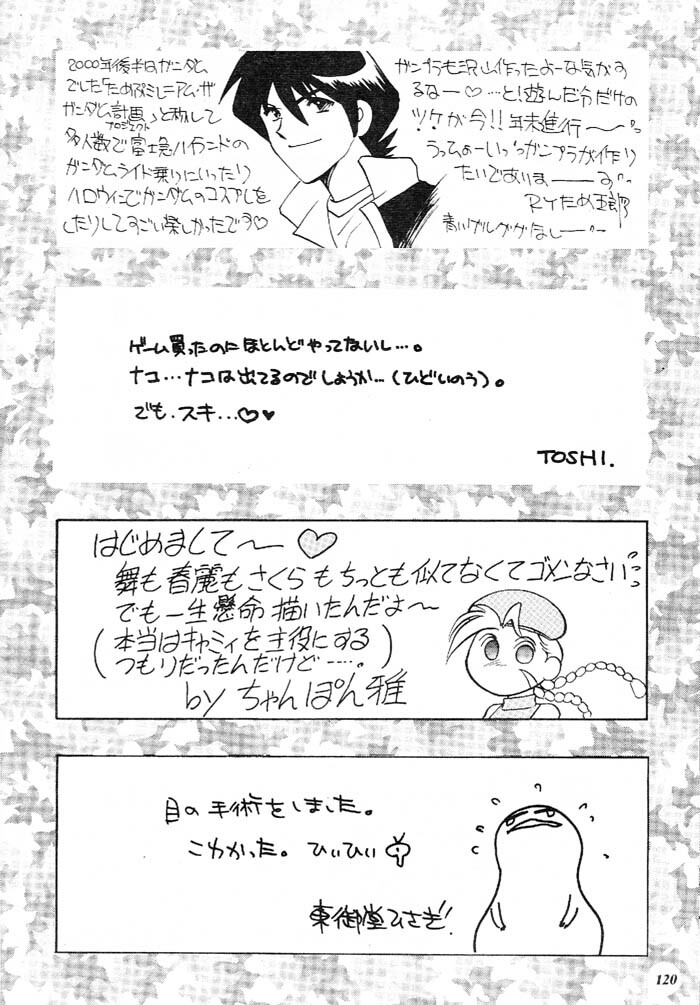 2000年後半はガンダム
でした「ため改ミレニアム・ザ
ガンダム計画」と称して
プロジェクト
多人数で富士急ハイランドの
ガンダムライド乗りにいったり
ハロウィンでガンダムのコスプレをし
たりしてすごい楽しかったです♡
ガンプラも沢山作ったよーな気がす
るなー♡…と!遊んだ分だけの
ツケが今!!年末進行〜〜
ガンプラが作り
たいでありまーーす
RYため五郎
ゲーム買ったのにほとんどやってないし…。
ナコ…ナコは出てるのでしょうか…(ひどいのう)。
でも、スキ…♡♥
TOSHI.
はじめまして〜〜♡
舞も春麗もさくらもちっとも似てなくてゴメンなさい
でも一生懸命描いたんだよ〜
(本当はキャミィを主役にする
つもりだったんだけど……。)
by ちゃんぽん雅
目の手術をしました。
こわかった。ひぃひぃ
東御堂ひさぎ!
120